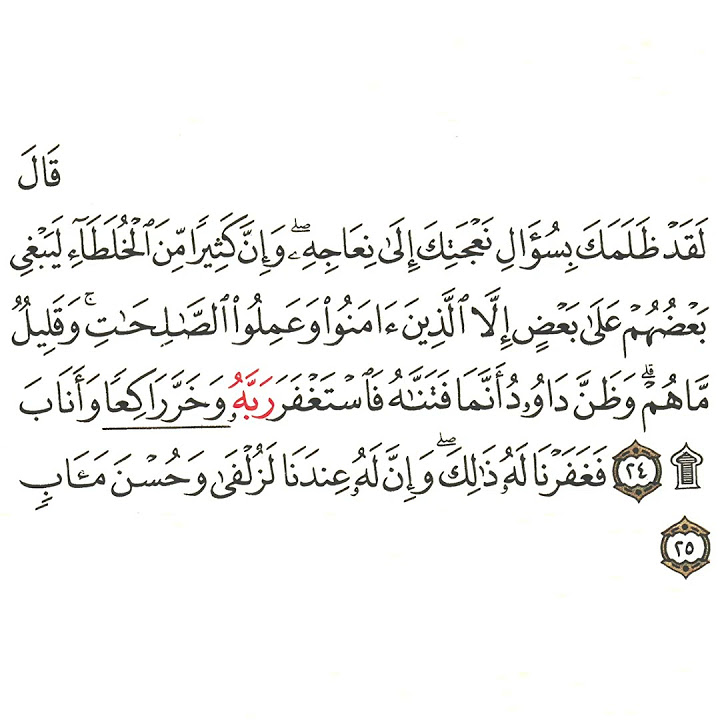 قَالَ
لَقَدْ ظَلَمَكَ بِسُؤَالِ نَعْجَتِكَ إِلَىٰ نِعَاجِهِۦۖ وَإِنَّ كَثِيرًا مِّنَ ٱلْخُلَطَآءِ لَيَبْغِى
بَعْضُهُمْ عَلَىٰ بَعْضٍ إِلَّا ٱلَّذِينَ ءَامَنُوا۟ وَعَمِلُوا۟ ٱلصَّـٰلِحَـٰتِ ۚ وَقَلِيلٌ
مَّا هُمْ ۗ وَظَنَّ دَاوُۥدُ أَنَّمَا فَتَنَّـٰهُ فَٱسْتَغْفَرَ رَبَّهُۥ وَخَرَّ رَاكِعًا وَأَنَابَ
۩ ٢٤ فَغَفَرْنَا لَهُۥ ذَٰلِكَ ۖ وَإِنَّ لَهُۥ عِندَنَا لَزُلْفَىٰ وَحُسْنَ مَـَٔابٍ
٢٥